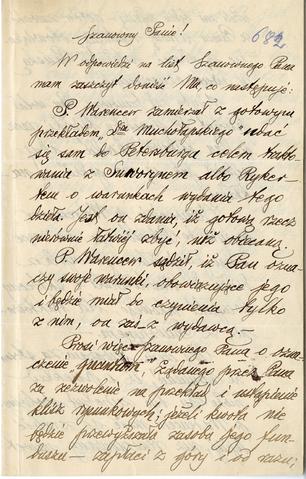 Szanowny Panie!
682
W odpowiedzi na list Szanownego Pana
mam zaszczyt donieść Mu, co następuje:
P. Warencew zamierzał z gotowym
przekładem „Dra Muchołapskiego" udać
się sam do Petersburga celem traktowania
z Suworynem albo Rykertem
o warunkach wydania tego
dzieła. Jest on zdania, iż gotową rzecz
nierównie łatwiej zbyć, niż obiecaną.
P. Warencew sądził, iż Pan oznaczy
swoje warunki, obowiązujące jego
i będzie miał do czynienia tylko
z nim, on zaś z wydawcą.—
Proszę więc Szanownego Pana o oznaczenie
quantum, żądanego przez Pana
za zezwolenie na przekład i ustąpienie
klisz rysunkowych; jeżeli kwota nie
będzie przewyższała zasobu jego funduszu
— zapłaci z góry i od razu;